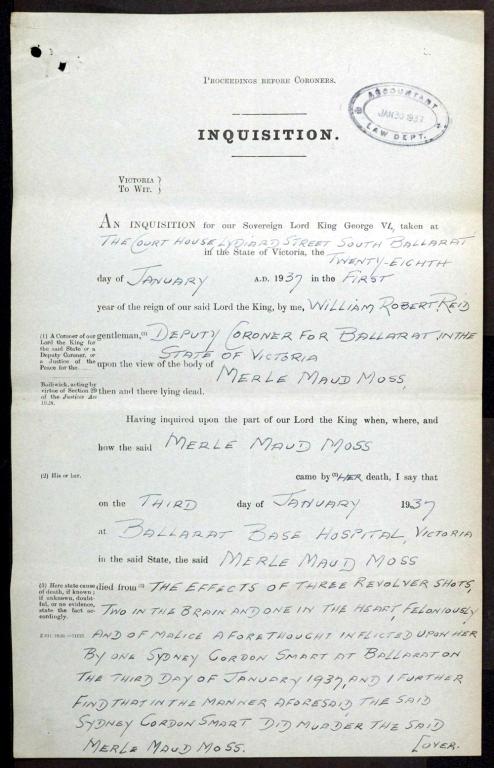 PROCEEDINGS BEFORE CORONERS.
ACCOUNTANT
JAN 30 1937
LAW DEPT.
INQUISITION.
VICTORIA }
TO WIT. }
AN INQUISITION for our Sovereign Lord King George VI, taken at
THE COURT HOUSE LYDIARD STREET SOUTH BALLARAT
in the State of Victoria, the TWENTY-EIGHTH
day of JANUARY A.D. 1937 in the FIRST
year of the reign of our said Lord the King, by me, WILLIAM ROBERT REID
(1) A Coroner of our Lord the King for the said State or a Deputy Coroner, or a Justice of the Peace for the......
Bailiwick, acting by virtue of Section 29 of the Justices Act 1928.
gentleman,(1) DEPUTY CORONER FOR BALLARAT IN THE
STATE OF VICTORIA
upon the view of the body of
MERLE MAUD MOSS,
then and there lying dead.
Having inquired upon the part of our Lord the King when, where, and
how the said MERLE MAUD MOSS
(2) His or her.
came by (2) HER death, I say that
on the THIRD day of JANUARY 1937
at BALLARAT BASE HOSPITAL, VICTORIA
in the said State, the said MERLE MAUD MOSS
(3) Here state cause of death, if known; if unknown, doubtful, or no evidence, state the fact accordingly.
died from (3) THE EFFECTS OF THREE REVOLVER SHOTS,
TWO IN THE BRAIN AND ONE IN THE HEART, FELONIOUSLY
AND OF MALICE AFORETHOUGHT INFLICTED UPON HER
BY ONE SYDNEY GORDON SMART AT BALLARAT ON
THE THIRD DAY OF JANUARY 1937, AND I FURTHER
FIND THAT IN THE MANNER AFORESAID, THE SAID
SYDNEY GORDON SMART DID MURDER THE SAID
MERLE MAUD MOSS. [OVER.